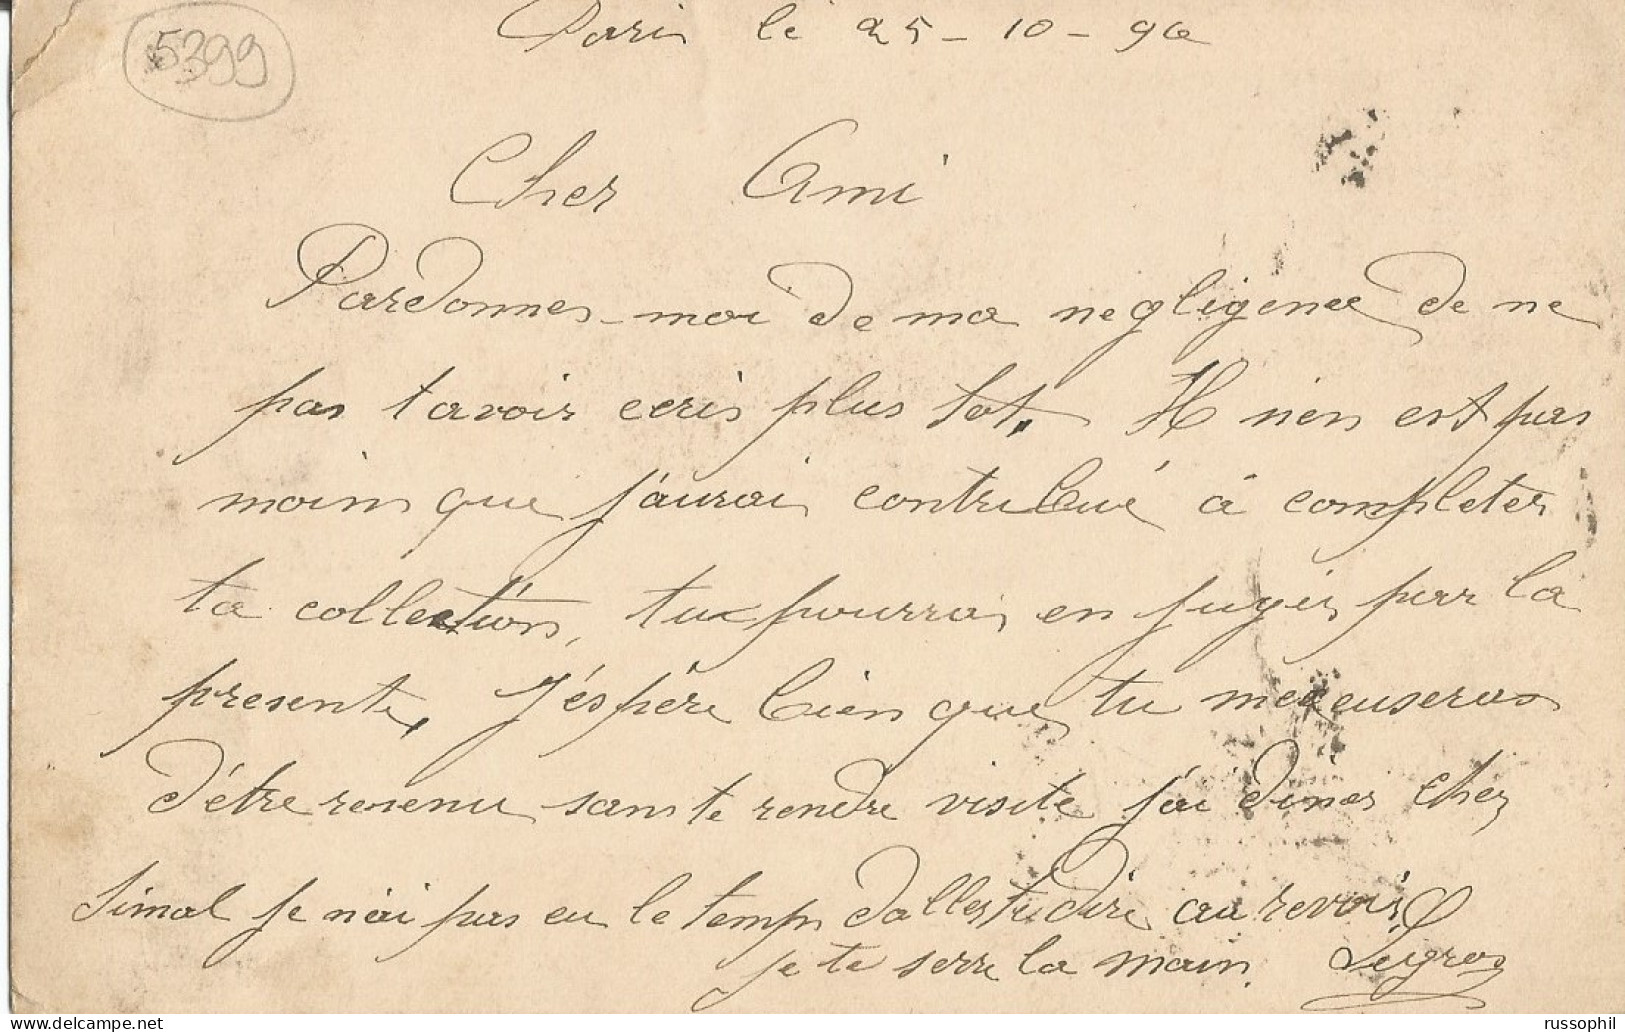 5399
Paris le 25-10-90
Cher Ami
Pardonnes-moi de ma negligence de ne
pas tavoir ecris plus tot, Il n'en est pas
moins que j'aurai contribué à completer
ta collection, tu pourras en juger par la
presente, J'éspère bien que tu mexcuseras
d'être revenu sans te rendre visite j'ai diner chez
Simal je n'ai pas eu le temps d'aller te dire au revoir.
je te serre la main. Legros
russophil